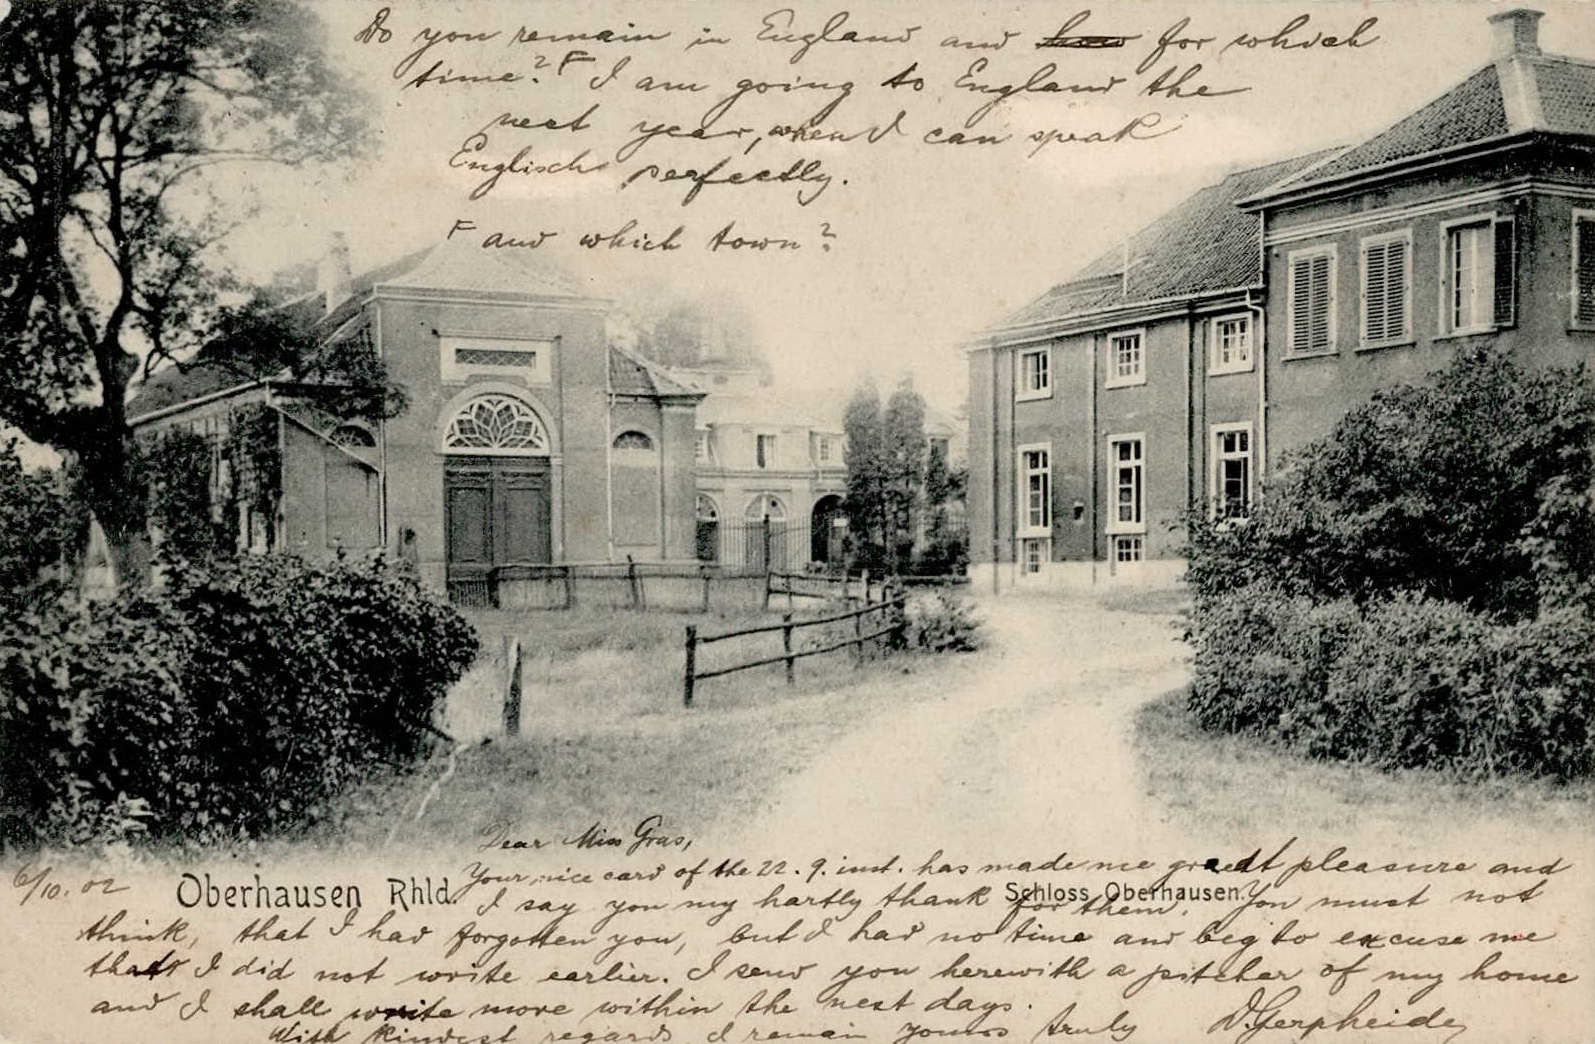 Do you remain in England and how for which
time? F I am going to England the
next year, when I can speak
Englisch perfectly.
F and which town?
Dear Miss Gras,
6/10. 02
Oberhausen Rhld.
Your nice card of the 22. 9. inst. has made me great pleasure and
Schloss Oberhausen.
I say you my hartly thank for them. You must not
think, that I had forgotten you, but I had no time and beg to excuse me
that I did not write earlier. I send you herewith a pitcher of my home
and I shall write more within the next days.
With kindest regards I remain yours truly D. Gerpheide